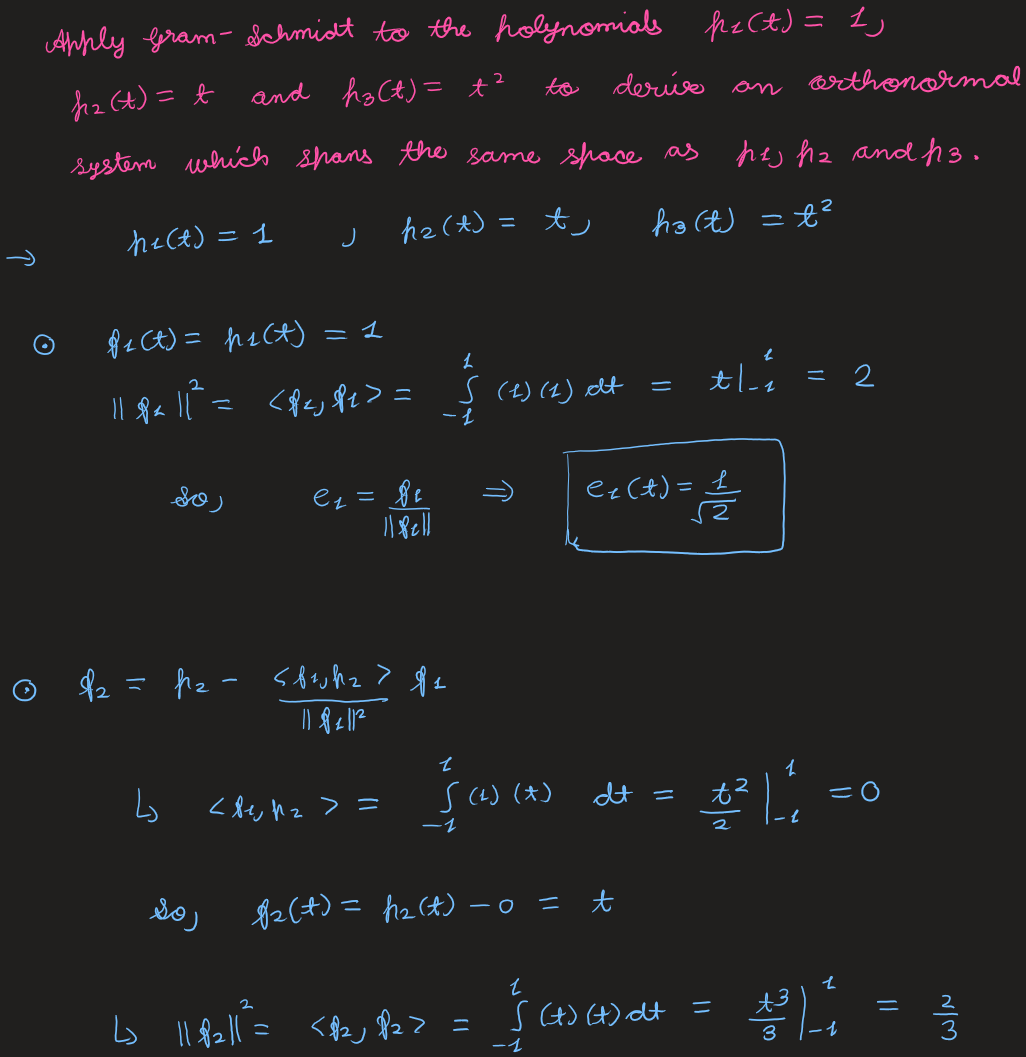 Apply Gram-Schmidt to the polynomials p1(t) = 1,
p2(t) = t and p3(t) = t² to derive an orthonormal
system which spans the same space as p1, p2 and p3.
→ p1(t) = 1 , p2(t) = t, p3(t) = t²
⊙ f1(t) = p1(t) = 1
||f1||² = <f1, f1> = ∫₋₁¹ (1)(1) dt = t|₋₁¹ = 2
so, e1 = f1/||f1|| ⇒ e1(t) = 1/√2
⊙ f2 = p2 - <f1,p2>/||f1||² f1
↳ <f1, p2> = ∫₋₁¹ (1)(t) dt = t²/2 |₋₁¹ = 0
so, f2(t) = p2(t) - 0 = t
↳ ||f2||² = <f2, f2> = ∫₋₁¹ (t)(t) dt = t³/3 |₋₁¹ = 2/3